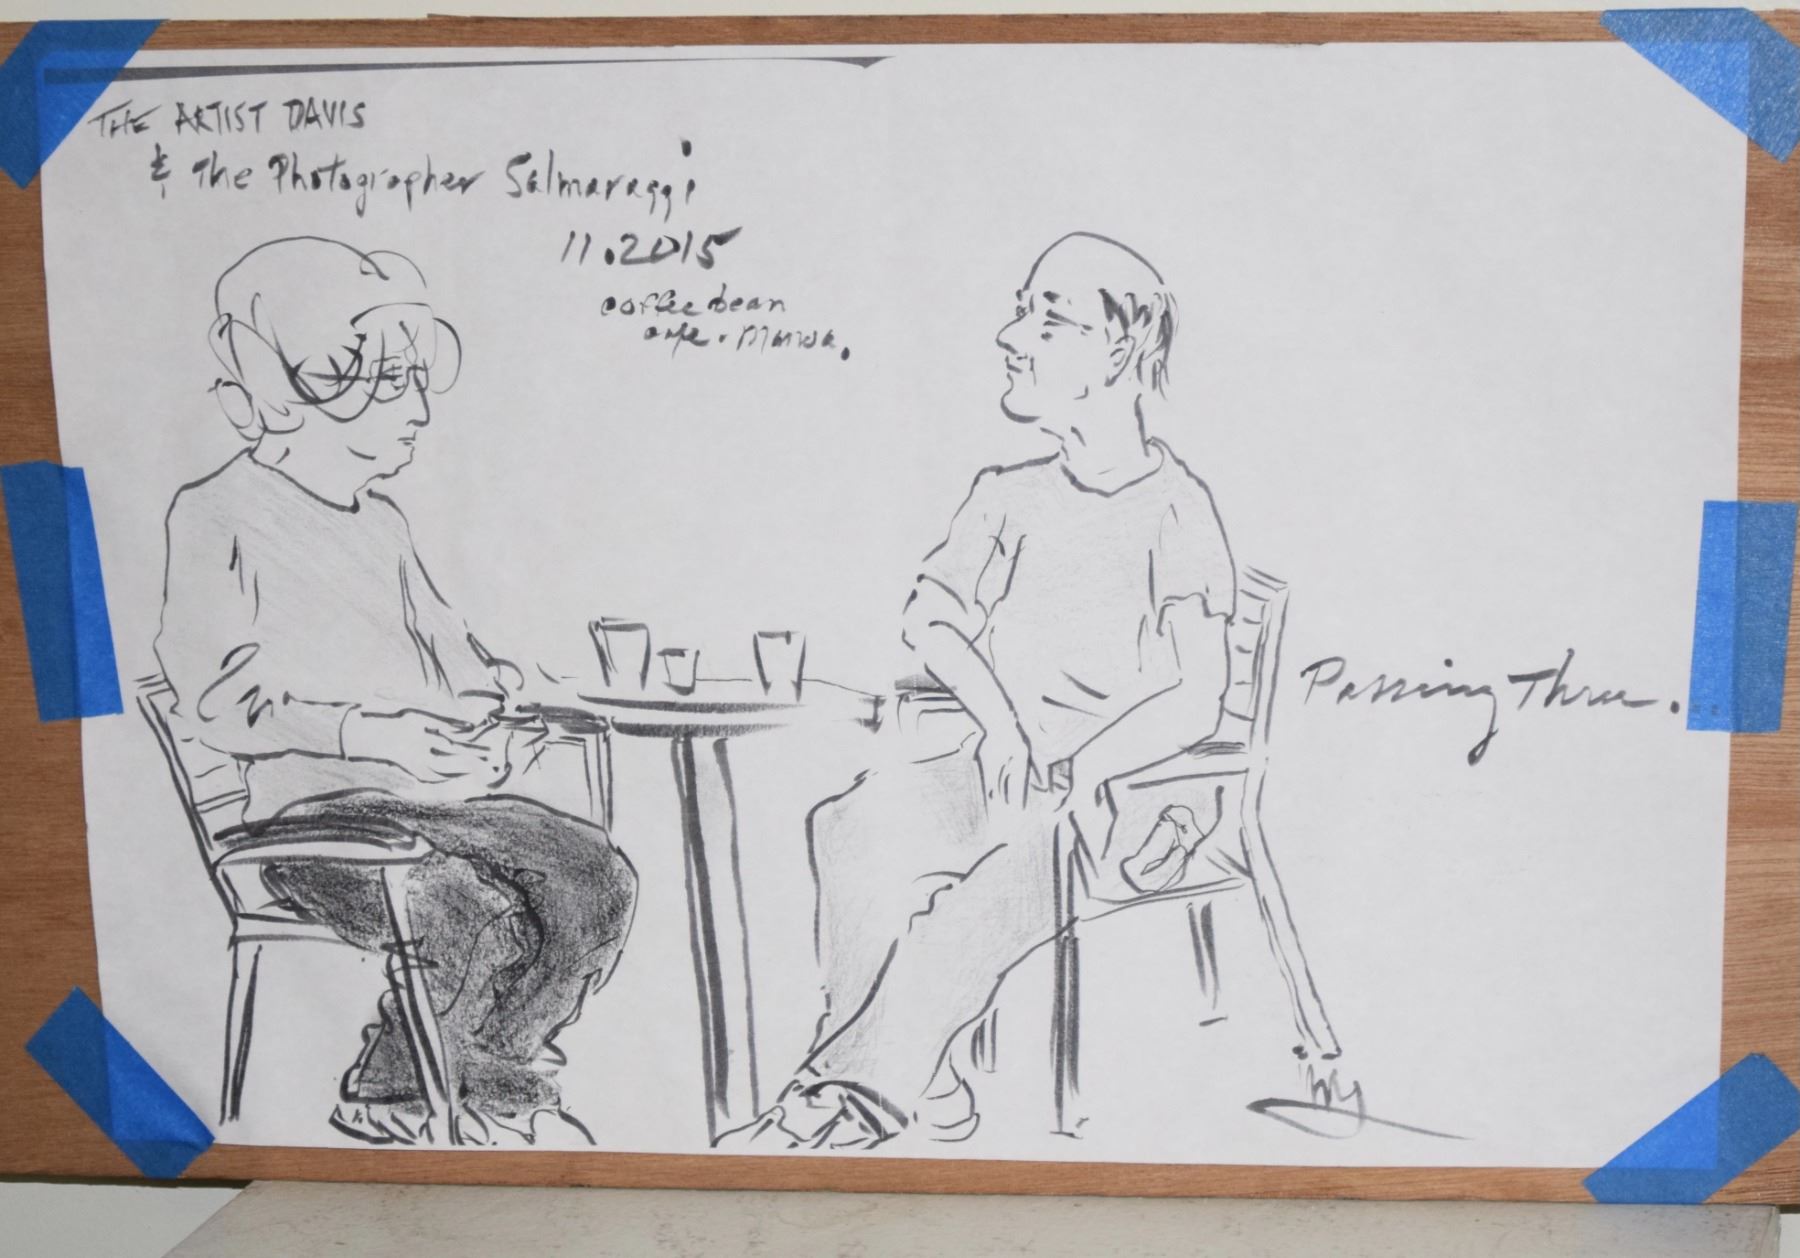 THE ARTIST DAVIS
& The Photographer Salmaraggi
11.2015
coffee bean
cafe. Marwa.
Passing Thru.